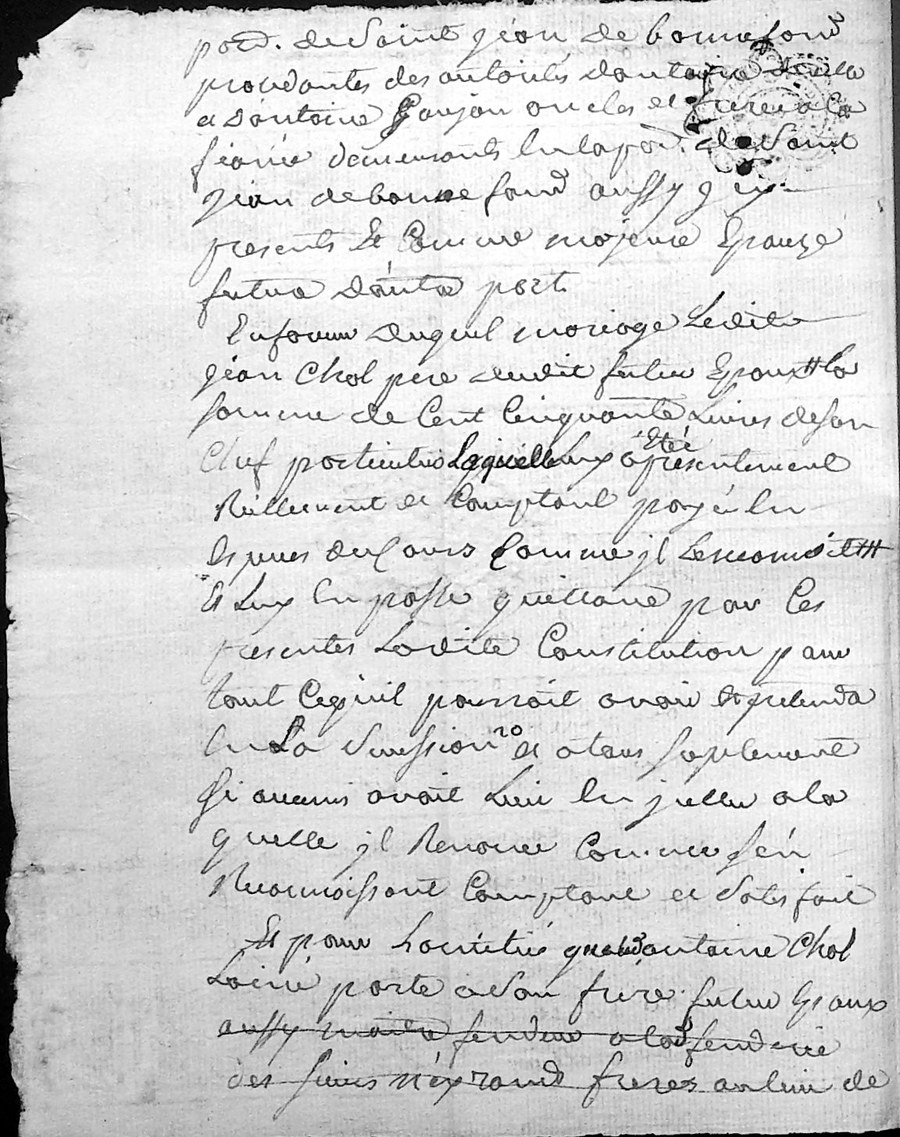 paro.^e de Saint jéan de bonnefond
procédantes des autorités d'antoine
et d'antoine goujon oncles et frere a la
fiancée demeurants en la par.^e de Saint
jéan de bonnefond aussy jcy
presents Et Comme mojenne Epouze
future d'autre part
En faveur duquel mariage Ledit
jéan Chol pere dudit futur Epoux # la
somme de Cent Cinquante Livres de son
Chef particulier Laquelle luy a Eté presentement
Réellement et Comptant payé en
Especes du Cours Comme jl Le reconnoit ##
Et Luy En passe quittance par Ces
presentes Ladite Constitution pour
tout Ce qu'il pourroit avoir Et pretendre
En La Succession et a tous suplement
si aucuns avoit Lieu En jcelle a la
quelle jl Renonce Comme s'en
Reconnoissant Comptant et Satisfait
Et pour L'amitié que led antoine Chol
Lainé porte a Son frere futur Epoux
aussy maitre fendeur a la fenderie
des sieurs neyrand freres au lieu de